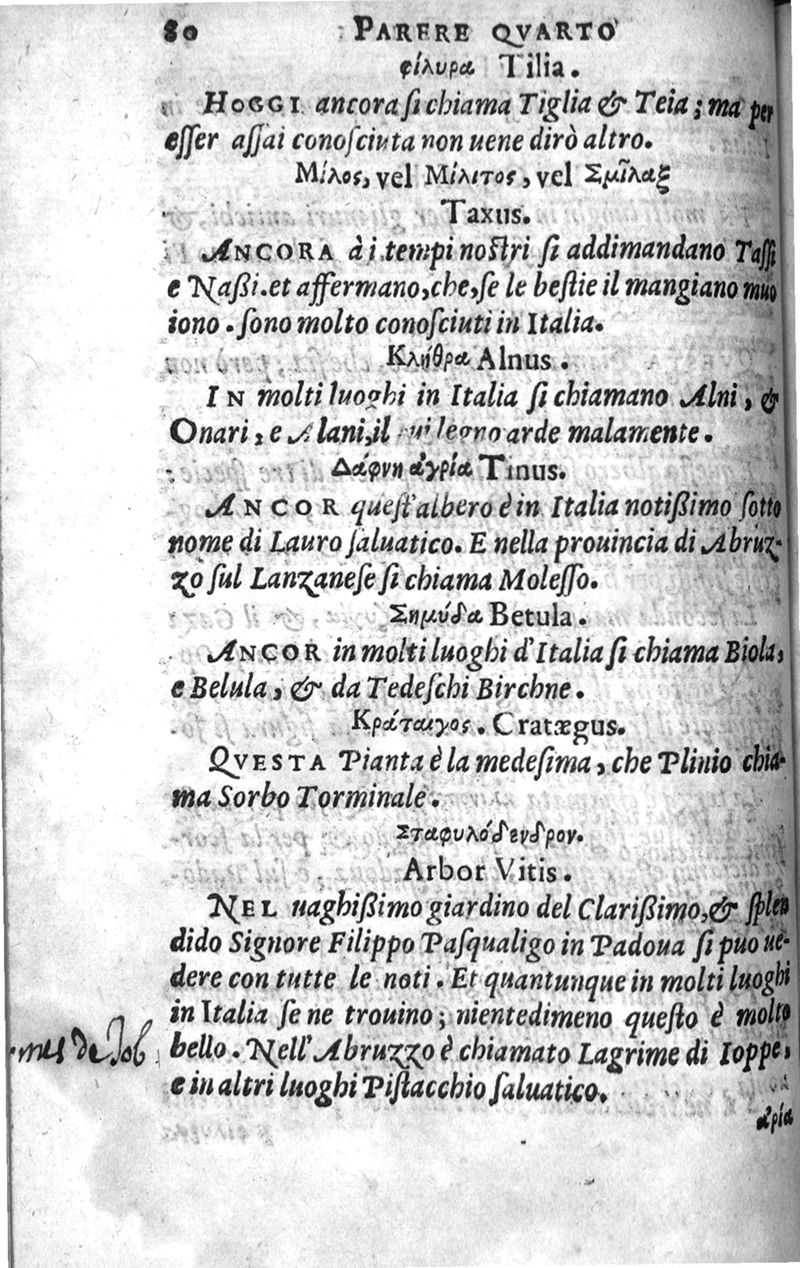 80 PARERE QVARTO
φίλυρα Tilia.
HOGGI ancora ſi chiama Tiglia & Teia; ma per
eſſer aſſai conoſciuta non uene dirò altro.
Μίλος, vel Μίλιτος, vel Σμῖλαξ
Taxus.
ANCORA à i tempi noſtri ſi addimandano Taſſi
e Naßi. et affermano, che, ſe le beſtie il mangiano muo
iono. ſono molto conoſciuti in Italia.
Κλήθρα Alnus.
IN molti luoghi in Italia ſi chiamano Alni, &
Onari, e Alani, il legno arde malamente.
Δάφνη ἀγρία Tinus.
ANCOR queſt'albero è in Italia notißimo ſotto
nome di Lauro ſaluatico. E nella prouincia di Abruz-
zo ſul Lanzaneſe ſi chiama Moleſſo.
Σημύδα Betula.
ANCOR in molti luoghi d'Italia ſi chiama Biola,
e Belula, & da Tedeſchi Birchne.
Κράταιγος. Cratægus.
QVESTA Pianta è la medeſima, che Plinio chia-
ma Sorbo Torminale.
Σταφυλόδενδρον.
Arbor Vitis.
NEL uaghißimo giardino del Clarißimo, & ſplen
dido Signore Filippo Paſqualigo in Padoua ſi puo ue-
dere con tutte le noti. Et quantunque in molti luoghi
in Italia ſe ne trouino; nientedimeno queſto è molto
bello. Nell'Abruzzo è chiamato Lagrime di Ioppe,
e in altri luoghi Piſtacchio ſaluatico.
de Job
ἀρία